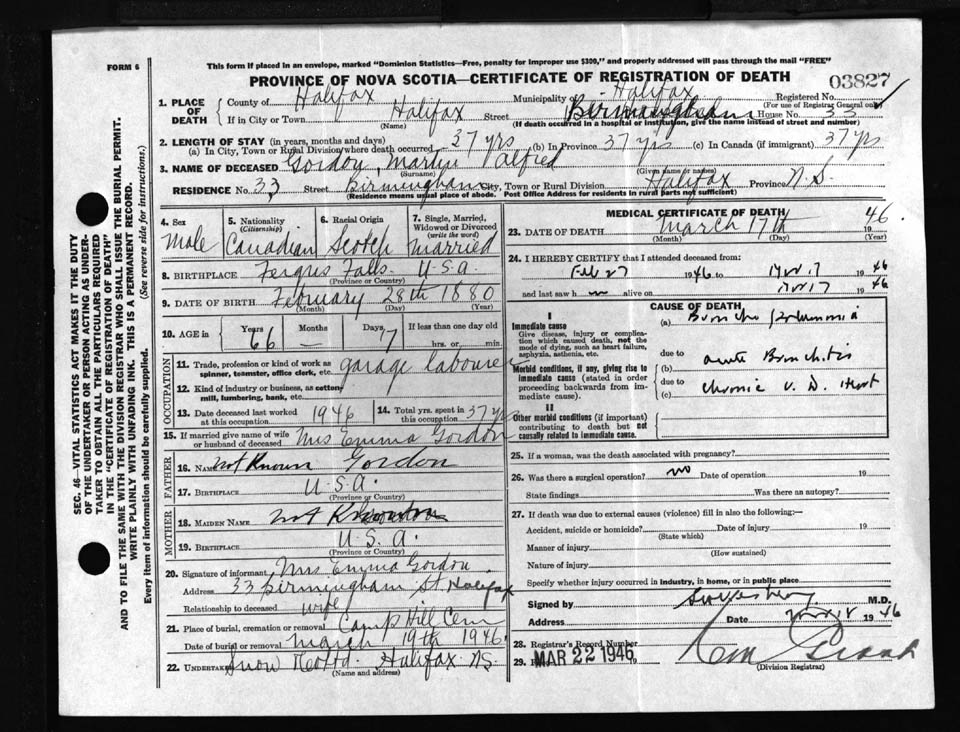 FORM 6
This form if placed in an envelope, marked "Dominion Statistics—Free, penalty for improper use $300," and properly addressed will pass through the mail "FREE"
PROVINCE OF NOVA SCOTIA—CERTIFICATE OF REGISTRATION OF DEATH
03827
1. PLACE OF DEATH
County of Halifax Municipality of Halifax Registered No.
(For use of Registrar General only)
If in City or Town Halifax Street Birmingham House No. 33
(Name) (If death occurred in a hospital or institution, give the name instead of street and number)
2. LENGTH OF STAY (in years, months and days)
(a) In City, Town or Rural Division where death occurred 37 yrs (b) In Province 37 yrs (c) In Canada (if immigrant) 37 yrs
3. NAME OF DECEASED Gordon, Martin Alfred
(Surname) (Given name or names)
RESIDENCE No. 33 Street Birmingham City, Town or Rural Division Halifax Province N.S.
(Residence means usual place of abode. Post Office Address for residents in rural parts not sufficient)
4. Sex
Male
5. Nationality
(Citizenship)
Canadian
6. Racial Origin
Scotch
7. Single, Married, Widowed or Divorced
(write the word)
Married
8. BIRTHPLACE Fergus Falls U.S.A.
(Province or Country)
9. DATE OF BIRTH February 28th 1880
(Month) (Day) (Year)
10. AGE in Years 66 Months — Days 17 If less than one day old
hrs. or min.
OCCUPATION
11. Trade, profession or kind of work as spinner, teamster, office clerk, etc. garage labourer
12. Kind of industry or business, as cotton-mill, lumbering, bank, etc.
13. Date deceased last worked at this occupation 1946
14. Total yrs. spent in this occupation 37 yrs
15. If married give name of wife or husband of deceased Mrs Emma Gordon
FATHER
16. NAME not Known Gordon
17. BIRTHPLACE U.S.A.
(Province or Country)
MOTHER
18. MAIDEN NAME not Known
19. BIRTHPLACE U.S.A.
(Province or Country)
20. Signature of informant Mrs Emma Gordon
Address 33 Birmingham St Halifax
Relationship to deceased wife
21. Place of burial, cremation or removal Camp Hill Cem
Date of burial or removal March 19th 1946
22. UNDERTAKER Snow Halifax N.S.
(Name and address)
MEDICAL CERTIFICATE OF DEATH
23. DATE OF DEATH March 17th 1946
(Month) (Day) (Year)
24. I HEREBY CERTIFY that I attended deceased from:
Feb 27 1946 to 17 1946
and last saw h m alive on 17 1946
CAUSE OF DEATH
I
Immediate cause
Give disease, injury or complication which caused death, not the mode of dying, such as heart failure, asphyxia, asthenia, etc.
(a) Broncho Pneumonia
due to
Morbid conditions, if any, giving rise to immediate cause (stated in order proceeding backwards from immediate cause).
(b) acute Bronchitis
due to
(c) Chronic V. D. Heart
II
Other morbid conditions (if important) contributing to death but not causally related to immediate cause.
25. If a woman, was the death associated with pregnancy?
26. Was there a surgical operation? no Date of operation 19
State findings Was there an autopsy?
27. If death was due to external causes (violence) fill in also the following:—
Accident, suicide or homicide? Date of injury 19
(State which)
Manner of injury
(How sustained)
Nature of injury
Specify whether injury occurred in industry, in home, or in public place
Signed by M.D.
Address Date 18 1946
28. Registrar's Record Number
29. MAR 22 1946
(Division Registrar)
SEC. 46—VITAL STATISTICS ACT MAKES IT THE DUTY OF THE UNDERTAKER OR PERSON ACTING AS UNDERTAKER TO OBTAIN ALL THE PARTICULARS REQUIRED IN THE "CERTIFICATE OF REGISTRATION OF DEATH" AND TO FILE THE SAME WITH THE DIVISION REGISTRAR WHO SHALL ISSUE THE BURIAL PERMIT.
WRITE PLAINLY WITH UNFADING INK. THIS IS A PERMANENT RECORD.
Every item of information should be carefully supplied. (See reverse side for instructions.)